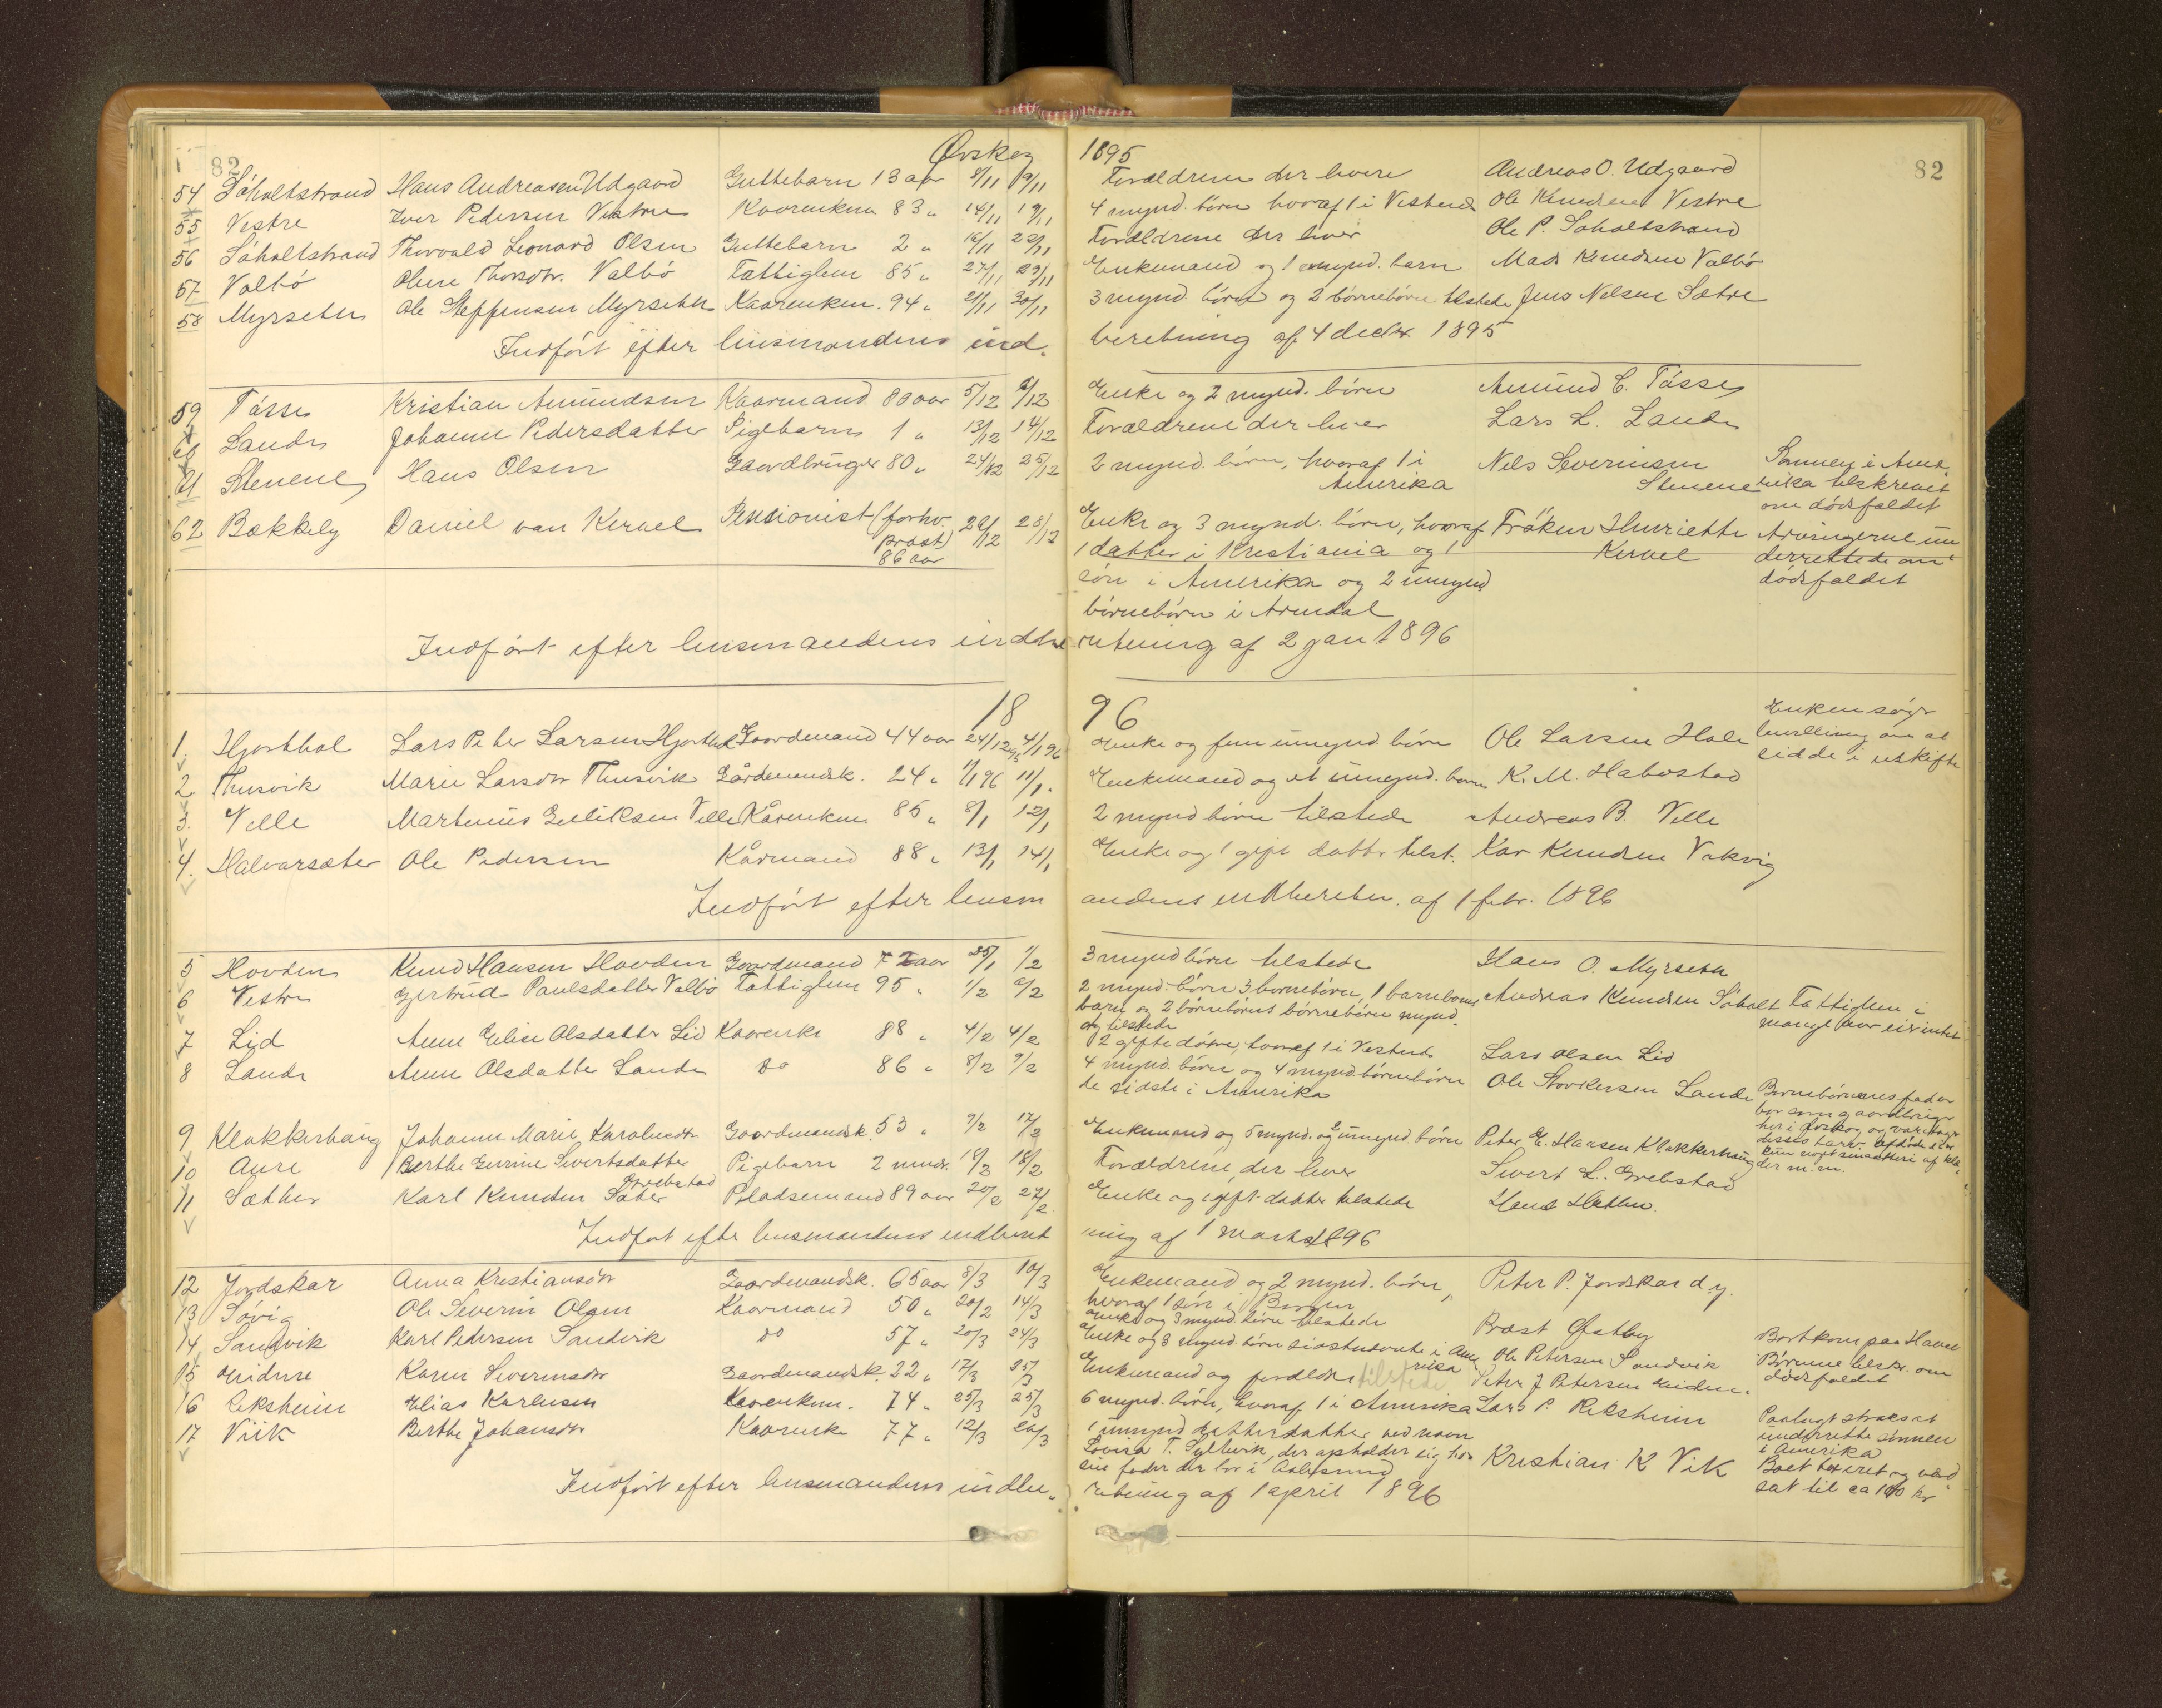 82
Ørskog 1895
82
54 Søholtstrand Hans Andreasen Udgaard Guttebarn 13 aar 8/11 19/11 Forældrene der lever Andreas O. Udgaard
55 Vestre Iver Pedersen Vestre Kaarenkem 83 " 14/11 19/11 4 mynd. børn hvoraf 1 i Vesterd Ole Knudsen Vestre
56 Søholtstrand Thorvald Leonard Olsen Guttebarn 2 " 16/11 20/11 Forældrene der lever Ole P. Søholtstrand
57 Valbø Oline Thorsdtr. Valbø Fattiglem 85 " 27/11 29/11 Enkemand og 1 mynd. barn Mads Knudsen Valbø
58 Myrseter Ole Steffensen Myrseter Kaarenkem. 94 " 21/11 30/11 3 mynd børn og 2 børnebørn tilstede Jens Nilsen Sætre
Indført efter lensmandens ind. beretning af 4 decbr. 1895
59 Tøsse Kristian Amundsen Kaarmand 80 aar 5/12 6/12 Enke og 2 mynd. børn Amund C. Tøsse
60 Lande Johanne Pedersdatter Pigebarn 1 " 13/12 14/12 Forældrene der lever Lars L. Lande
61 Stenene Hans Olsen Gaardbruger 80 " 24/12 25/12 2 mynd. børn, hvoraf 1 i Nels Severinsen Sønnen i Ame
Amerika Stenene rika tilskrevet
om dødsfaldet
62 Bakkely Daniel van Kervel Pensionist (forhv. 28/12 Enke og 3 mynd. børn, hvoraf Frøken Henriette Arvingerne un
Prost) 1 datter i Kristiania og 1 Kervel derrettede om
86 aar søn i Amerika og 2 umynd dødsfaldet
børnebørn i Arendal
Indført efter lensmandens indbe retning af 2 jan 1896
1896
Enken søgr
1. Hjorthol Lars Peter Larsen Hjorthol Gaardmand 44 aar 24/12 95 4/1 96 Enke og fem umynd børn Ole Larsen Hole bevilling om at
sidde i uskifte
2 Thusvik Marie Larsdtr Thusvik Gårdmandsk. 24 " 1/1 96 11/1. Enkemand og et umynd. barn K. M. Habostad
3. Velle Martinus Gulliksen Velle Kårenkem 85 " 8/1 12/1 2 mynd børn tilstede Andreas B. Velle
4. Halvarsæter Ole Pedersen Kårmand 88 " 13/1 14/1 Enke og 1 gift dattr tilst. Kar Knudsen Vakvig
Indført efter lensm andens indberetn. af 1 febr. 1896
5 Hovden Knud Hansen Hovden Gaardmand 72 aar 25/1 1/2 3 mynd børn tilstede Hans O. Myrseter
6 Vestre Gjertrud Paulsdatter Valbø Fattiglem 95 " 1/2 6/2 2 mynd. børn 3 børnebørn, 1 barnebarns Andreas Knudsen Søholt Fattiglem i
barn og 2 børnebørns børnebørn mynd. mangl aar eier intet
og tilstede
7 Lid Anne Eline Olsdatter Lid Kaarenke 88 " 4/2 4/2 2 gifte døtre, hvoraf 1 i Vesterd Lars Olsen Lid
8 Lande Anne Olsdatter Lande do 86 " 8/2 9/2 4 mynd. børn og 4 mynd. børnebørn Ole Storkersen Lande Børnebørnenes fader
de sidste i Amerika bor som gaardbruger
9 Klokkerhaug Johanne Marie Karolusdtr Gaardmandsk. 53 " 9/2 17/2 Enkemand og 5 mynd. og 2 umynd børn Peter E. Hansen Klokkerhaug
10 Aure Berthe Gurine Sivertsdatter Pigebarn 2 mndr. 16/2 18/2 Forældrene, der lever Sivert L. Grebstad der m. m.
Grebstad
11 Sæther Karl Knudsen Sæter Pladsemand 89 aar 20/2 27/2 Enke og 1 gift datter tilstede
Indført efter lensmandens indberet ning af 1 marts 1896
12 Jordskar Anna Kristiansdtr Gaardmandsk. 65 aar 8/3 10/3 Enkemand og 2 mynd. børn, Peter P. Jordskar d. y.
hvoraf 1 søn i Bergen
13 Søvig Ole Severin Olsen Kaarmand 50 " 20/2 14/3 Enke og 3 mynd. børn tilstede Prost Østby
14 Sandvik Karl Petersen Sandvik do 57 " 20/3 24/3 Enke og 8 mynd børn sidstnævnte i Ame Ole Petersen Sandvik Bortkom paa Havet
rika Børnene tilskr. om
dødsfaldet
15 Karen Severinsdtr Gaardmandsk. 22 " 17/3 25/3 Enkemand og foreldre tilstede Peter J Petersen
16 Reksheim Elias Karlusen Kaarenkem. 74 " 25/3 25/3 6 mynd. børn, hvoraf 1 i Amerika Lars P. Reksheim Paalagt straks at
underrette sønnen
i Amerika
17 Viik Berthe Johansdtr Kaarenke 77 " 12/3 26/3 1 umynd datterdatter ved navn Kristian K Vik
Lovisa T. der opholder sig hos Boet taxeret og værd
sin fader der bor i Aalesund sat til ca 100 kr
Indført efter lensmandens indbe. retning af 1 april 1896